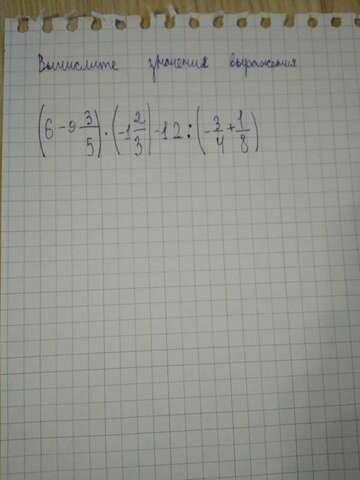 Вычислите значения выражения
(6-9 3/5)·(-1 2/3)-12:(-3/4+1/8)